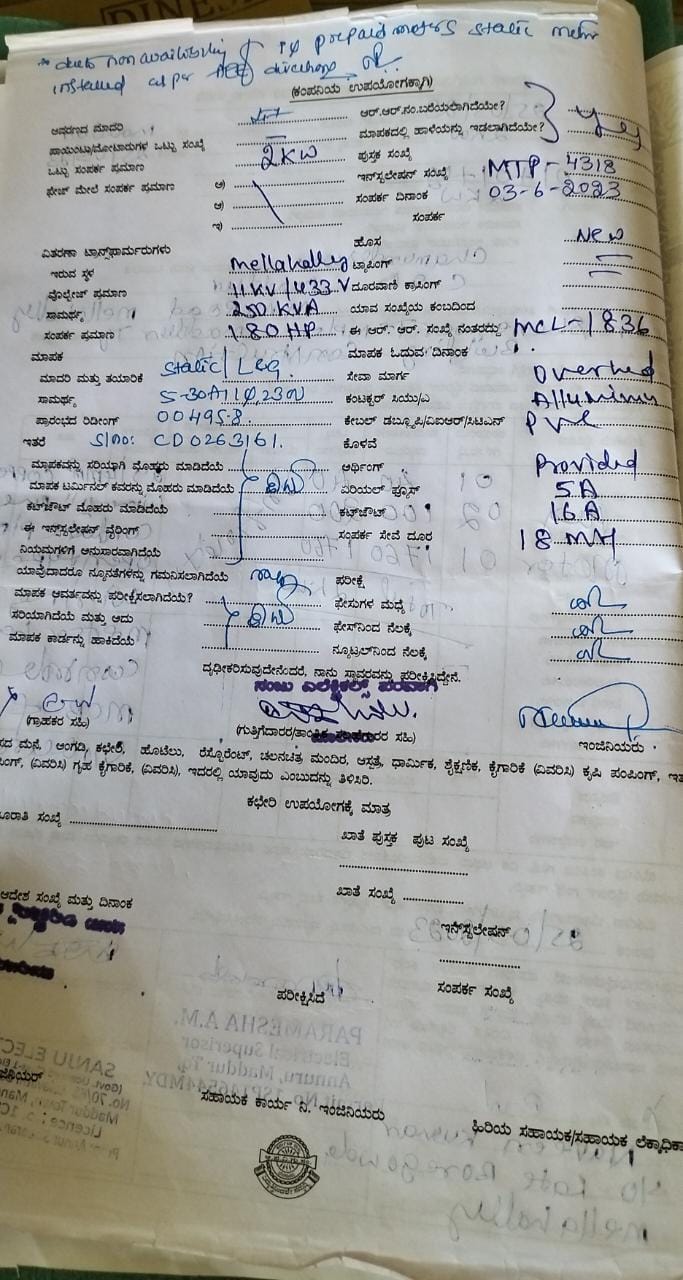 * due to non availability of 1φ prepaid meters static meter
installed as per directions
(ಕಂಪನಿಯ ಉಪಯೋಗಕ್ಕಾಗಿ)
ಆವರಣದ ಮಾದರಿ ಆರ್.ಆರ್.ನಂ.ಬರೆಯಲಾಗಿದೆಯೇ?
ಪಾಯಿಂಟು/ಮೋಟಾರುಗಳ ಒಟ್ಟು ಸಂಖ್ಯೆ — ಮಾಪಕದಲ್ಲಿ ಹಾಳೆಯನ್ನು ಇಡಲಾಗಿದೆಯೇ? yes
ಒಟ್ಟು ಸಂಪರ್ಕ ಪ್ರಮಾಣ 2KW ಪುಸ್ತಕ ಸಂಖ್ಯೆ
ಫೇಜ್ ಮೇಲೆ ಸಂಪರ್ಕ ಪ್ರಮಾಣ ಅ) ಇನ್‌ಸ್ಟಲೇಷನ್ ಸಂಖ್ಯೆ MTP-4318
ಆ) ಸಂಪರ್ಕ ದಿನಾಂಕ 03-6-2023
ಇ) ಸಂಪರ್ಕ
ವಿತರಣಾ ಟ್ರಾನ್ಸ್‌ಫಾರ್ಮರುಗಳು ಹೊಸ New
ಇರುವ ಸ್ಥಳ Mellahally ಟ್ಯಾಪಿಂಗ್ —
ವೋಲ್ಟೇಜ್ ಪ್ರಮಾಣ 11KV/433V ದೂರವಾಣಿ ಕಾಸಿಂಗ್ —
ಸಾಮರ್ಥ್ಯ 250 KVA ಯಾವ ಸಂಖ್ಯೆಯ ಕಂಬದಿಂದ
ಸಂಪರ್ಕ ಪ್ರಮಾಣ 180 HP ಈ ಆರ್. ಆರ್. ಸಂಖ್ಯೆ ನಂತರದ್ದು MCL-1836
ಮಾಪಕ ಮಾಪಕ ಓದುವ ದಿನಾಂಕ
ಮಾದರಿ ಮತ್ತು ತಯಾರಿಕೆ Static/L&G ಸೇವಾ ಮಾರ್ಗ Overhed
ಸಾಮರ್ಥ್ಯ 5-30A 1φ,230V ಕಂಡಕ್ಟರ್ ಸಿಯು/ಎ Alluminum
ಪ್ರಾರಂಭದ ರಿಡೀಂಗ್ 00495.8 ಕೇಬಲ್ ಡಬ್ಲ್ಯೂಪಿ/ವಿಐಆರ್/ಸಿಟಿಎಸ್ PVC
ಇತರೆ Slno: CD0263161. ಕೊಳವೆ
ಮಾಪಕವನ್ನು ಸರಿಯಾಗಿ ಮೊಹರು ಮಾಡಿದೆಯೆ ಆರ್ಥಿಂಗ್ Provided
ಮಾಪಕ ಟರ್ಮಿನಲ್ ಕವರನ್ನು ಮೊಹರು ಮಾಡಿದೆಯೆ ಏರಿಯಲ್ ಫ್ಯೂಸ್ 5A
ಕಟ್‌ಔಟ್ ಮೊಹರು ಮಾಡಿದೆಯೆ ಕಟ್‌ಔಟ್ 16A
ಈ ಇನ್‌ಸ್ಟಲೇಷನ್ ವೈರಿಂಗ್ ಸಂಪರ್ಕ ಸೇವೆ ದೂರ 18
ನಿಯಮಗಳಿಗೆ ಅನುಸಾರವಾಗಿದೆಯೆ
ಯಾವುದಾದರೂ ನ್ಯೂನತೆಗಳನ್ನು ಗಮನಿಸಲಾಗಿದೆಯೆ ಪರೀಕ್ಷೆ
ಮಾಪಕ ಆವರ್ತವನ್ನು ಪರೀಕ್ಷಿಸಲಾಗಿದೆಯೆ? ಫೇಸುಗಳ ಮಧ್ಯೆ
ಸರಿಯಾಗಿದೆಯೆ ಮತ್ತು ಅದು ಫೇಸ್‌ನಿಂದ ನೆಲಕ್ಕೆ
ಮಾಪಕ ಕಾರ್ಡನ್ನು ಹಾಕಿದೆಯೆ ನ್ಯೂಟ್ರಲ್‌ನಿಂದ ನೆಲಕ್ಕೆ
ದೃಢೀಕರಿಸುವುದೇನೆಂದರೆ, ನಾನು ಸ್ಥಾವರವನ್ನು ಪರೀಕ್ಷಿಸಿದ್ದೇನೆ.
ಸಂಜು ಎಲೆಕ್ಟ್ರಿಕಲ್ಸ್ ಪರವಾಗಿ
(ಗ್ರಾಹಕರ ಸಹಿ) (ಗುತ್ತಿಗೆದಾರರ/ ಸಹಿ) ಇಂಜಿನಿಯರು
ಮನೆ, ಅಂಗಡಿ, ಕಛೇರಿ, ಹೊಟೆಲು, ರೆಸ್ಟೋರೆಂಟ್, ಚಲನಚಿತ್ರ ಮಂದಿರ, ಆಸ್ಪತ್ರೆ, ಧಾರ್ಮಿಕ, ಶೈಕ್ಷಣಿಕ, ಕೈಗಾರಿಕೆ (ವಿವರಿಸಿ) ಕೃಷಿ ಪಂಪಿಂಗ್,
(ವಿವರಿಸಿ) ಗೃಹ ಕೈಗಾರಿಕೆ, (ವಿವರಿಸಿ), ಇದರಲ್ಲಿ ಯಾವುದು ಎಂಬುದನ್ನು ತಿಳಿಸಿರಿ.
ಕಛೇರಿ ಉಪಯೋಗಕ್ಕೆ ಮಾತ್ರ
ಸಂಖ್ಯೆ ಖಾತೆ ಪುಸ್ತಕ ಪುಟ ಸಂಖ್ಯೆ
ಖಾತೆ ಸಂಖ್ಯೆ
ಆದೇಶ ಸಂಖ್ಯೆ ಮತ್ತು ದಿನಾಂಕ
ಇನ್‌ಸ್ಟಲೇಷನ್
ಪರೀಕ್ಷಿಸಿದೆ ಸಂಪರ್ಕ ಸಂಖ್ಯೆ
ಸಹಾಯಕ ಕಾರ್ಯ ನಿ. ಇಂಜಿನಿಯರು ಹಿರಿಯ ಸಹಾಯಕ/ಸಹಾಯಕ ಲೆಕ್ಕಾಧಿಕಾ